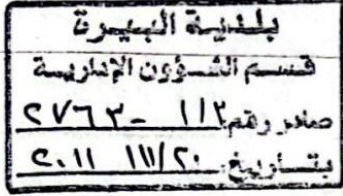 بلدية البيرة
قسم الشؤون الإدارية
صادر رقم: ١١٢ - ٢٧٦٣
بتاريخ: ٢٠/١١/ ٢٠١١